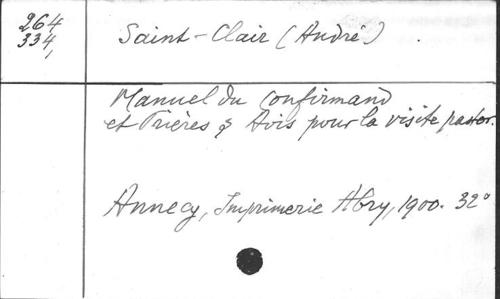 264
334,
Saint-Clair (André) .
Manuel du Confirmand
et Prières & Avis pour la visite pastor.
Annecy, Imprimerie Abry, 1900. 32°